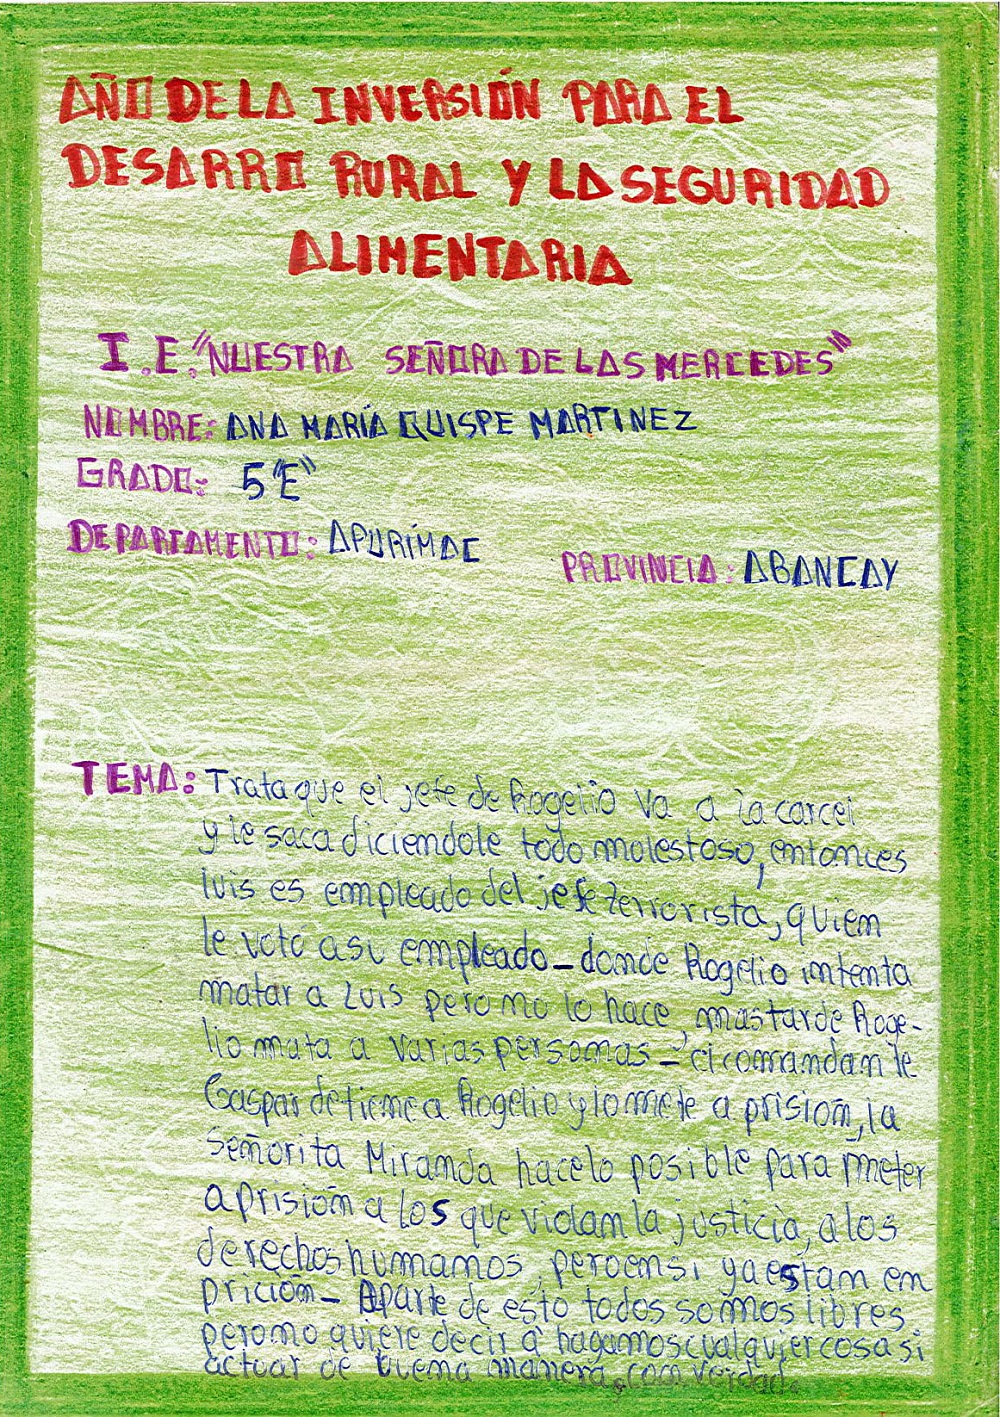 AÑO DE LA INVERSIÓN PARA EL
DESARRO RURAL Y LA SEGURIDAD
ALIMENTARIA
I.E. "NUESTRA SEÑORA DE LAS MERCEDES"
NOMBRE: ANA MARÍA QUISPE MARTINEZ
GRADO: 5 "E"
DEPARTAMENTO: APURÍMAC
PROVINCIA: ABANCAY
TEMA: Trata que el jefe de Rogelio va a la carcel
y le saca diciendole todo molestoso, entonces
luis es empleado del jefe terrorista, quien
le voto a su empleado - donde Rogelio intenta
matar a Luis pero no lo hace, mas tarde Roge-
lio mata a varias personas - el comandante
Gaspar detiene a Rogelio y lo mete a prisión, la
Señorita Miranda hace lo posible para meter
a prisión a los que violan la justicia, a los
derechos humanos, pero en si ya estan en
prición - Aparte de esto todos somos libres
pero no quiere decir a hagamos cualquier cosa si
actuar de buena manera, con verdad.